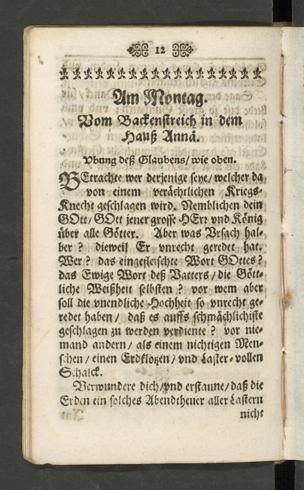 12
Am Montag.
Vom Backenstreich in dem
Hauß Annâ.
Ubung deß Glaubens / wie oben.
BEtrachte wer derjenige seye / welcher da
von einem verächtlichen Kriegs-
Knecht geschlagen wird. Nemblichen dein
GOtt / GOtt jener grosse HErr vnd König
über alle Götter. Aber was Vrsach hal-
ber? dieweil Er vnrecht geredet hat.
Wer? das eingefleischte Wort GOttes?
das Ewige Wort deß Vatters / die Gött-
liche Weißheit selbsten? vor wem aber
soll die vnendliche Hochheit so vnrecht ge-
redet haben / daß es auffs schmächlichiste
geschlagen zu werden verdiente? vor nie-
mand andern / als einem nichtigen Men-
schen / einen Erdklotzen / vnd Laster-vollen
Schalck.
Verwundere dich / vnd erstaune / daß die
Erden ein solches Abendtheuer aller Lastern
nicht